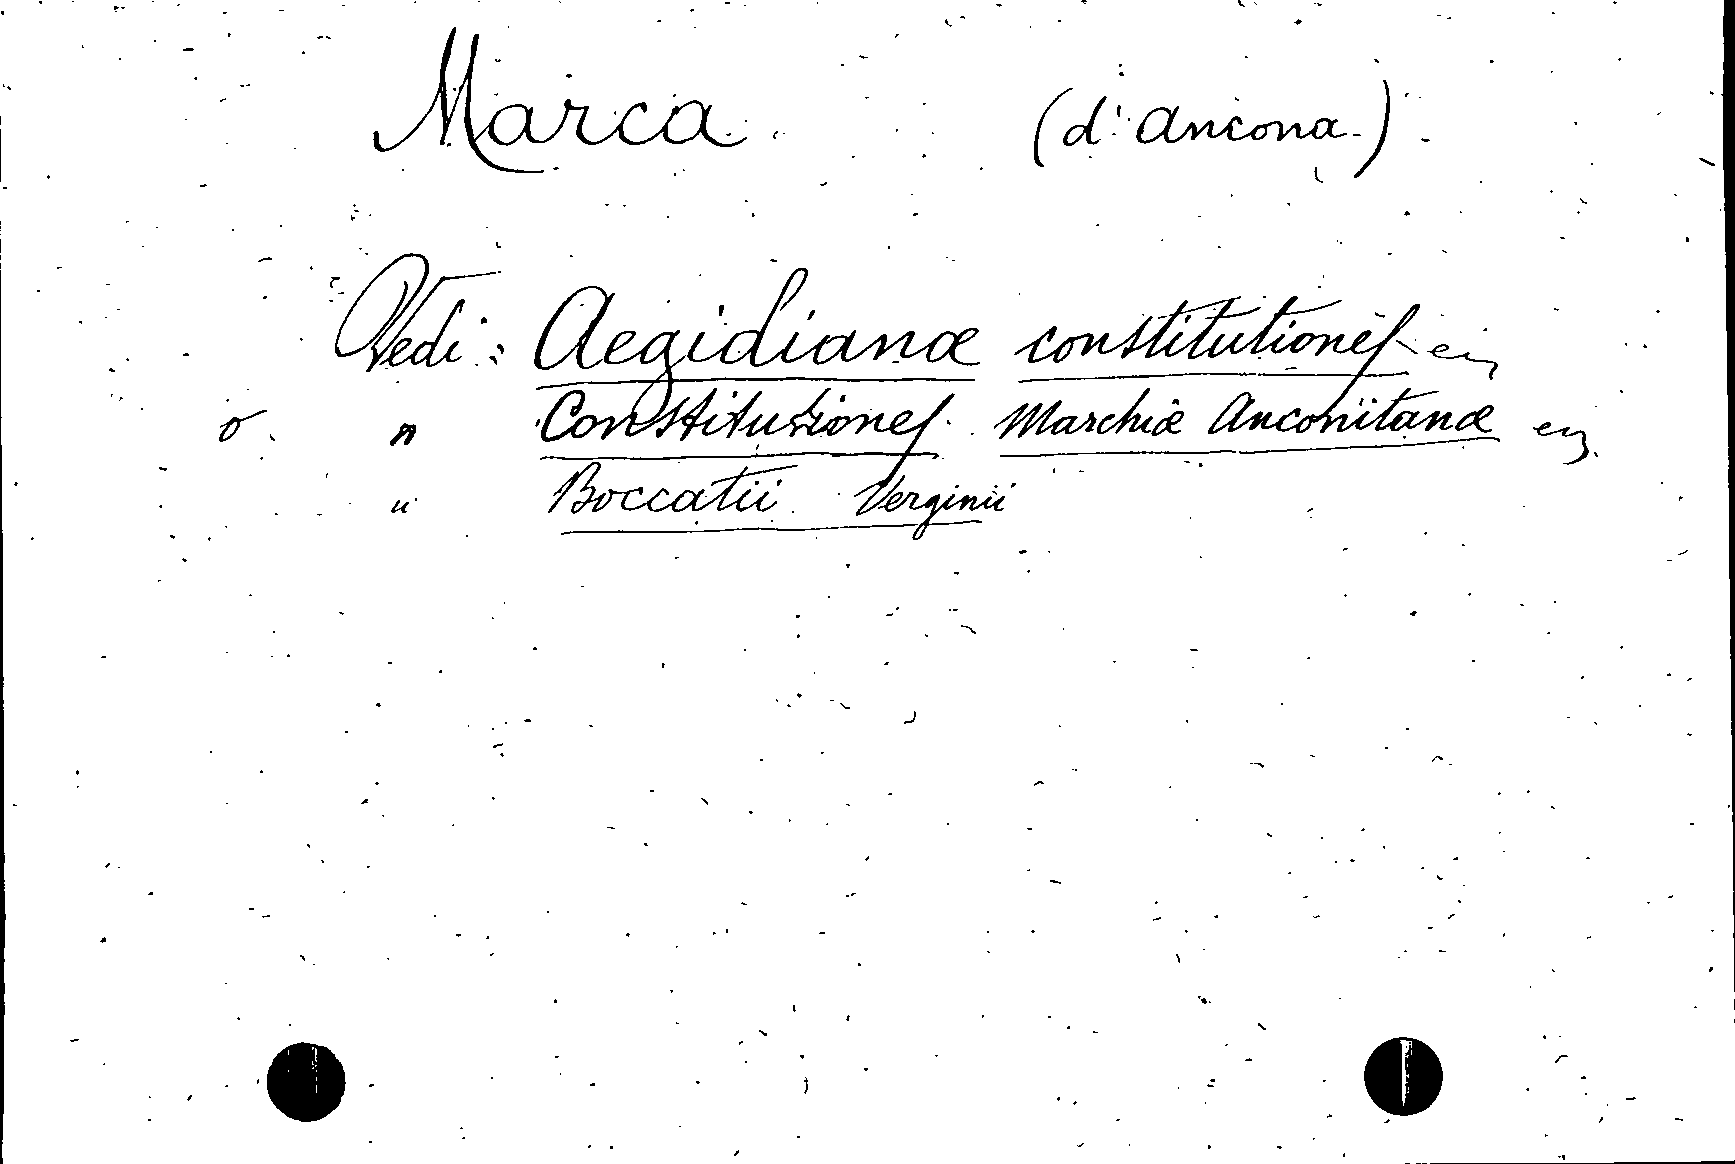 Marca (d'Ancona)
Vedi: Aegidianæ constitutiones ecc.
o " Constitutiones Marchiæ Anconitanæ ecc.
" Boccatii Verginii